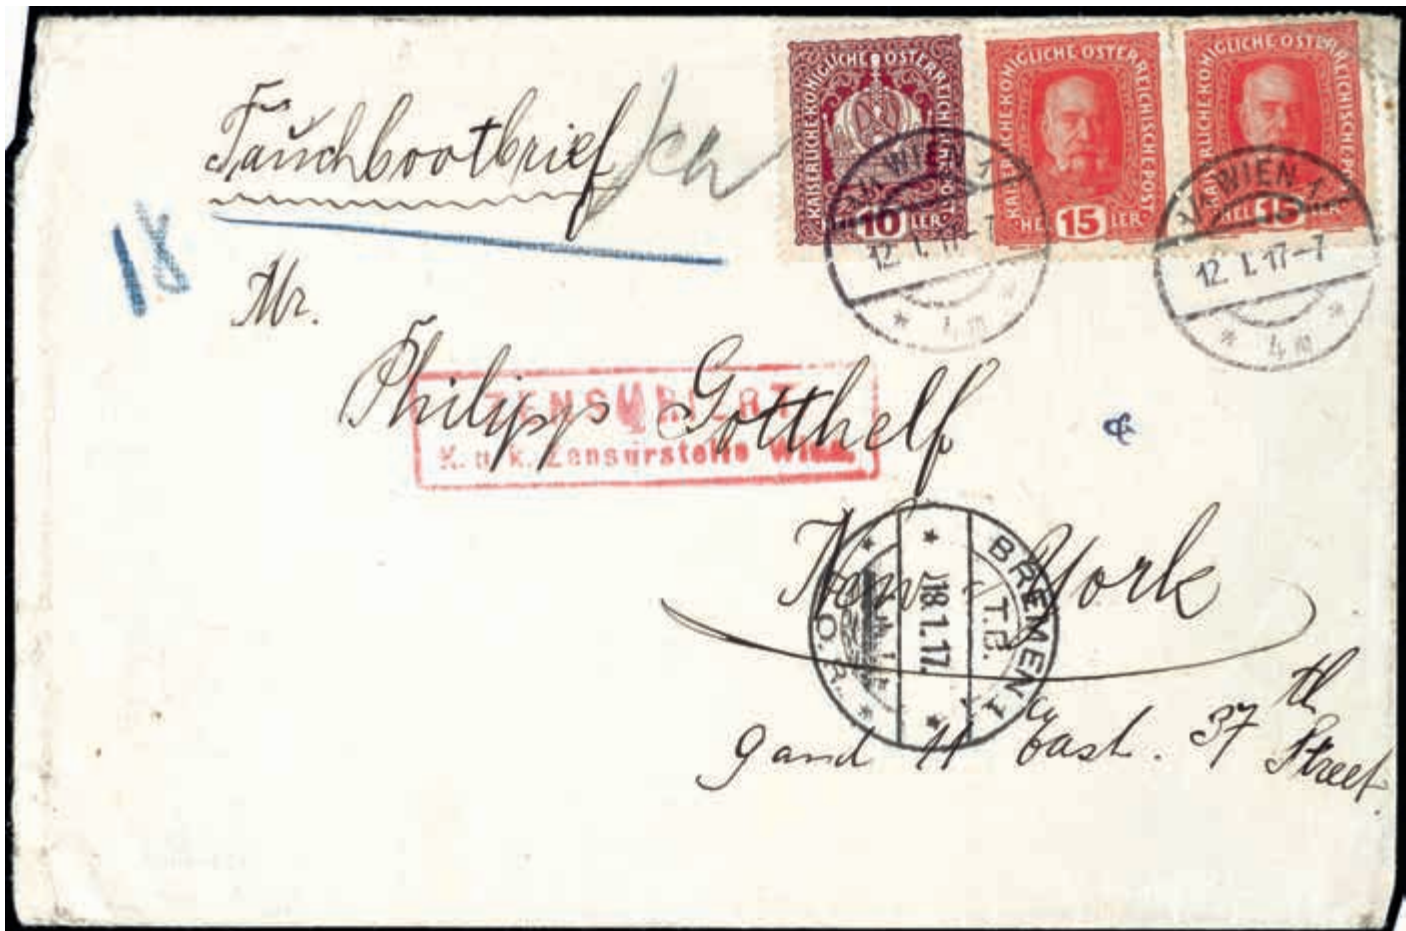 Tauchbootbrief
18
KAISERLICHE KÖNIGLICHE ÖSTERREICHISCHE POST
10 HELLER
KAISERLICHE KÖNIGLICHE ÖSTERREICHISCHE POST
15 HELLER
KAISERLICHE KÖNIGLICHE ÖSTERREICHISCHE POST
15 HELLER
WIEN 1
12. I. 17-7
* 4m *
WIEN 1
12. I. 17-7
* 4m *
Mr.
Philipp Gotthelf
ZENSURIERT
K. u. k. Zensurstelle Wien.
New York
BREMEN 1
T.B.
18.1.17.
9 and 11 East. 37th Street.